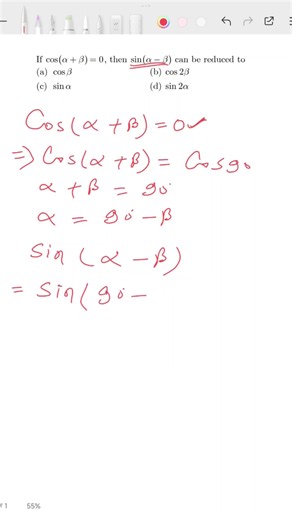 If cos(α + β) = 0, then sin(α − β) can be reduced to
(a) cos β (b) cos 2β
(c) sin α (d) sin 2α
Cos(α + β) = 0
⇒ Cos(α + β) = Cos90
α + β = 90°
α = 90° − β
Sin(α − β)
= Sin(90° −
1 55%